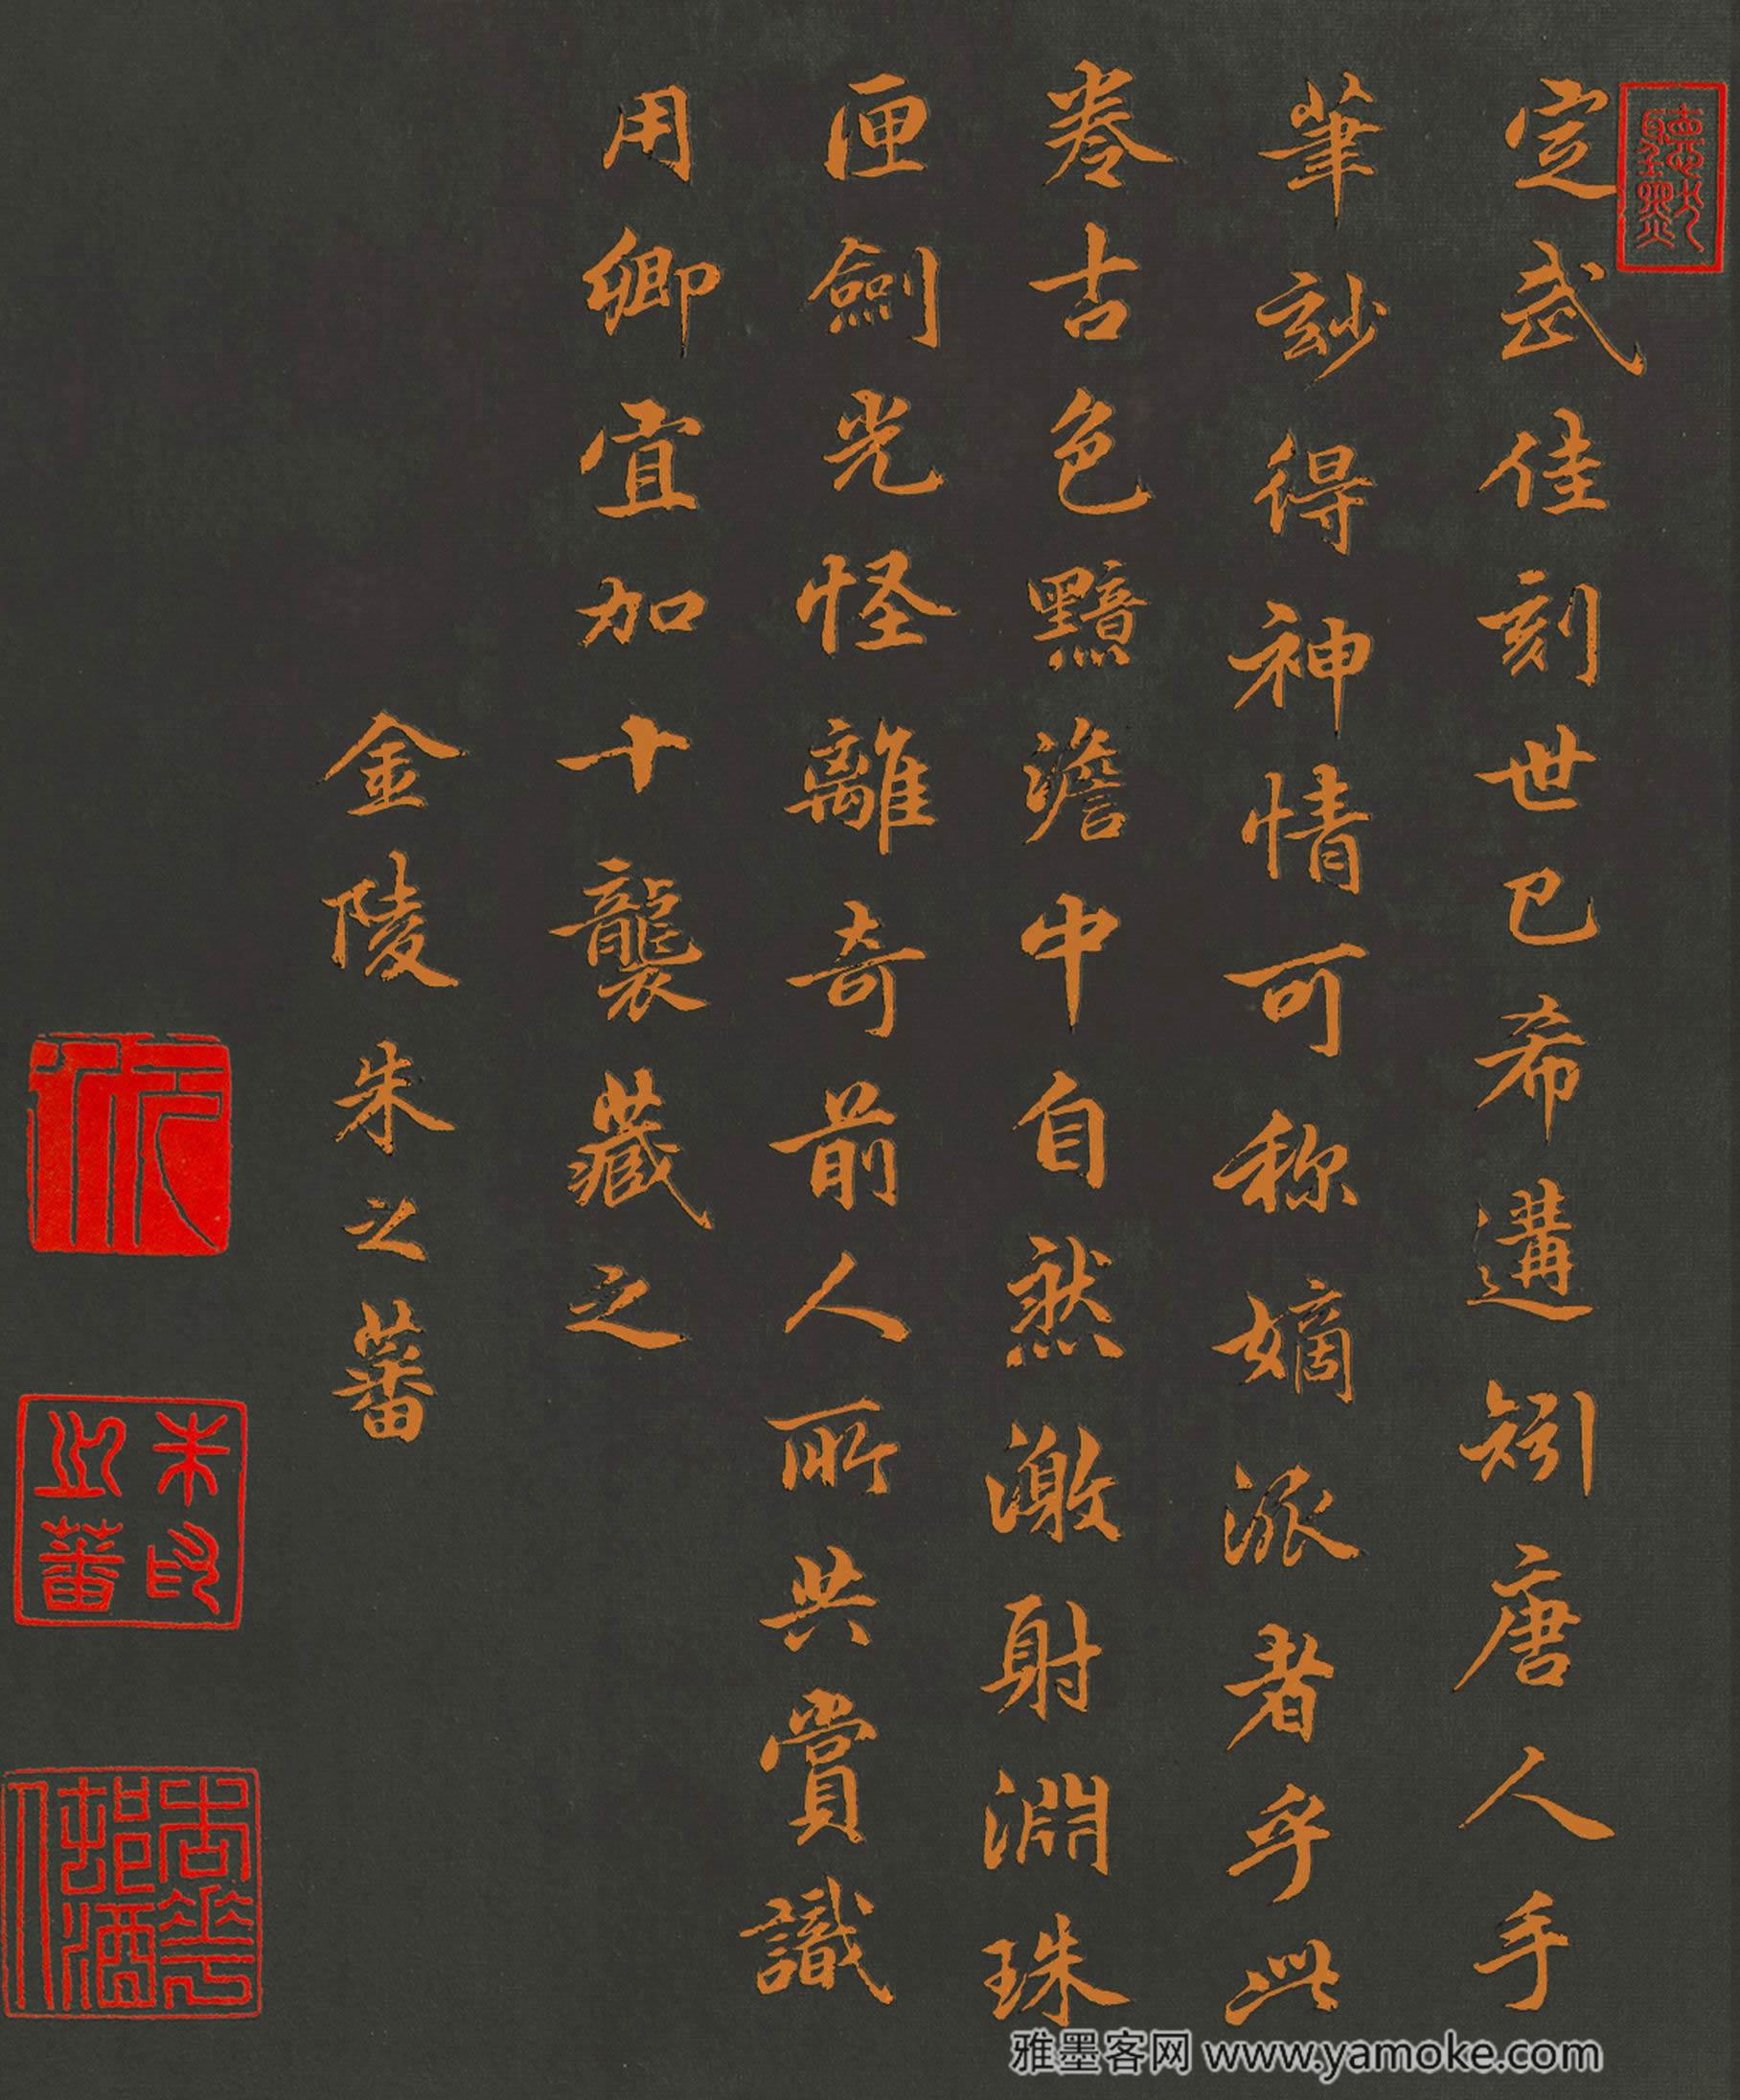 定武佳刻世已希遘矧唐人手
筆玅得神情可称嫡派者乎此
卷古色黯澹中自然激射淵珠
匣劍光怪離奇前人所共賞識
用卿宜加十襲藏之
金陵朱之蕃
朱印之蕃
雅墨客网 www.yamoke.com